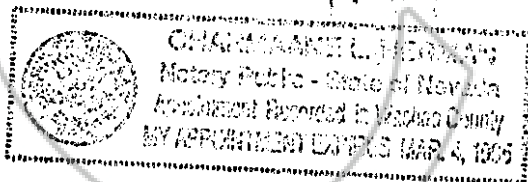 Notary Public - State of Nevada
Appointment Recorded in Washoe County
MY APPOINTMENT EXPIRES MAR. 4, 1995